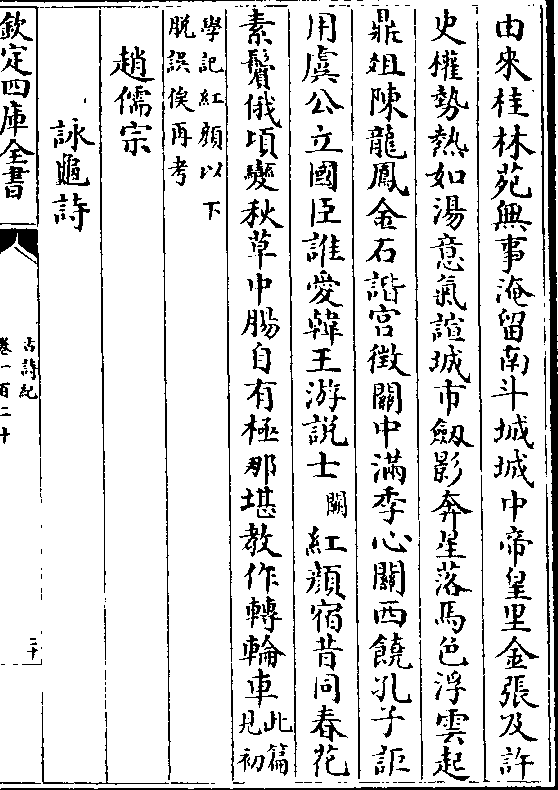 由來桂林苑無事淹留南斗城城中帝皇里金張及許
史權勢熱如湯意氣諠城市劔影奔星落馬色浮雲起
鼎俎陳龍鳳金石諧宮徴關中滿季心關西饒孔子詎
用虞公立國臣誰愛韓王游説士闕紅顔宿昔同春花
素鬢俄頃變秋草中腸自有極那堪教作轉輪車此篇
見初
學記紅顔以下
脱誤俟再考
趙儒宗
詠龜詩
欽定四庫全書
古詩紀
卷一百二十
二十